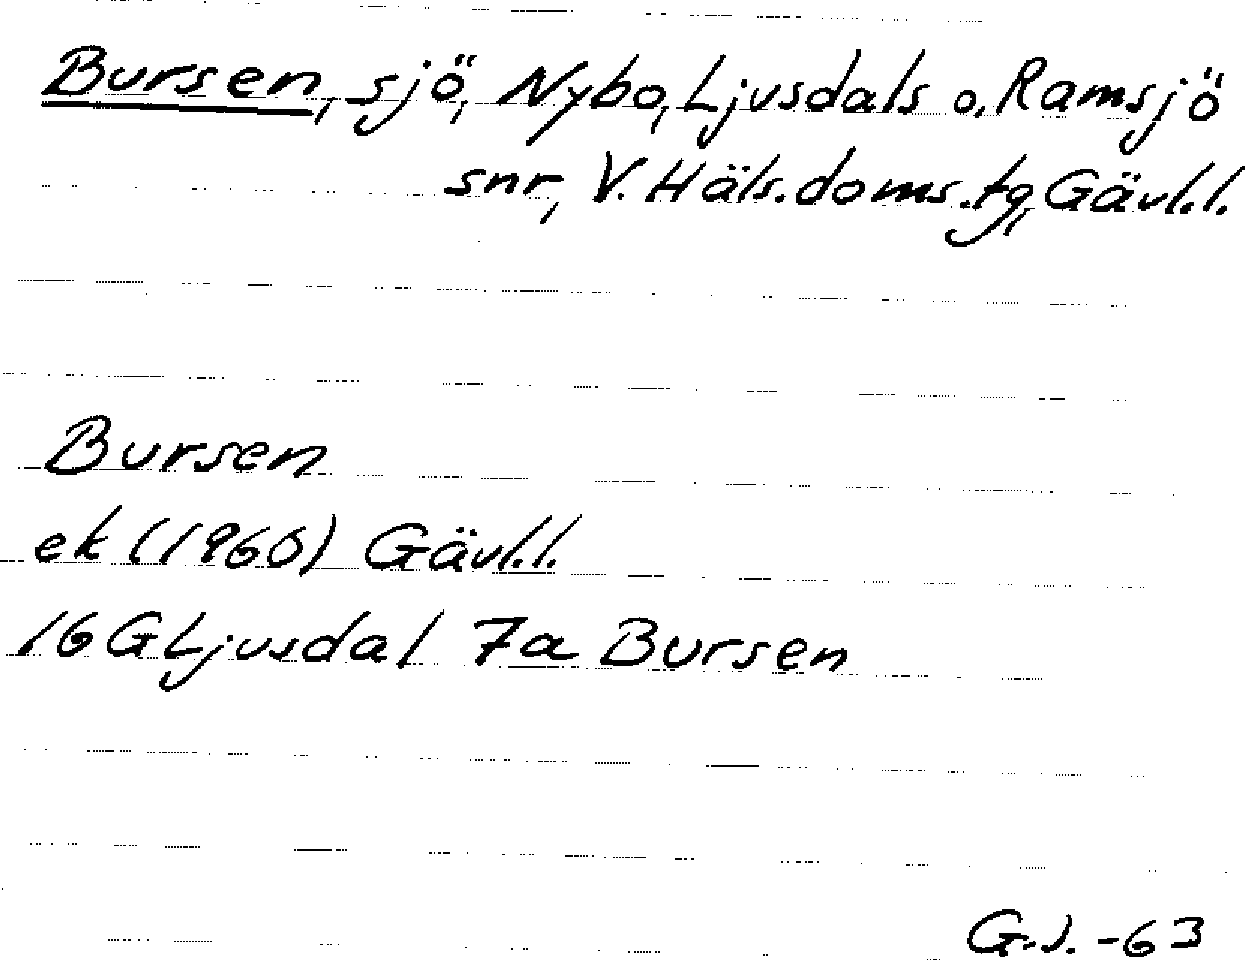 Bursen, sjö, Nybo, Ljusdals o. Ramsjö
snr, V. Häls. doms.tg, Gävl.l.
Bursen
ek (1960) Gävl.l.
16G Ljusdal 7a Bursen
G.J. -63